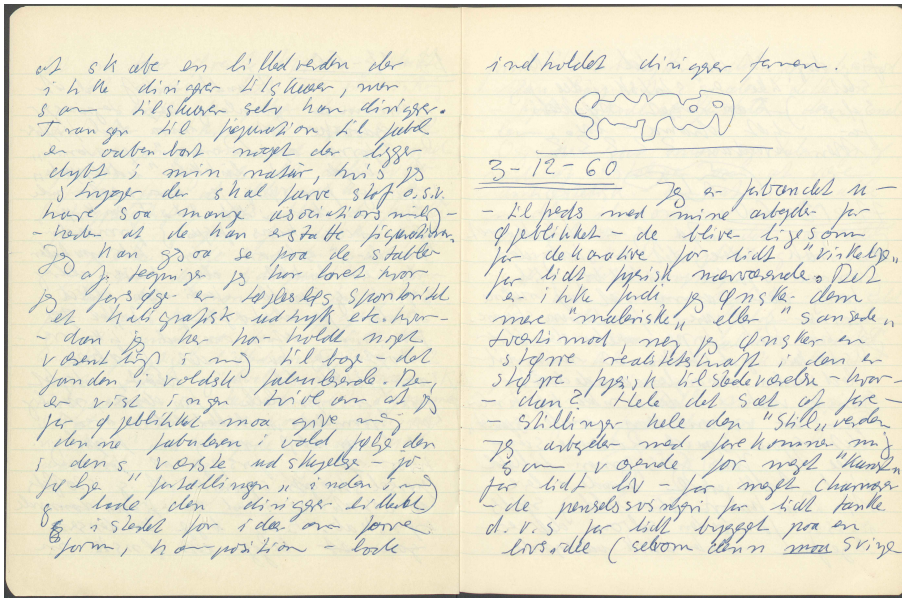 at skabe en billedverden der
ikke dirigger tilskuer, mer
som tilskuer selv kan dirigger.
Trangen til figuration til fabel
er aabenbart noget der ligger
dybt i min natur, hvis jeg
skal farve stof o.s.v.
have saa mange asociationsmulig-
-heder at de kan erstatte figurationen.
Jeg kan gaa se paa de stabler
af tegninger jeg har lavet hvor
jeg forsøger er tøjlesløs spontanitet
et kaligrafisk udtryk etc. hvor-
-dan jeg her har holdt noget
væsentligt i mig tilbage - det
fanden i voldsk fabulerende. Der
er vist ingen tvivl om at jeg
for øjeblikket maa give mig
denne fabuleren i vold følge den
i dens værste udskejelse - jo
følge "fortællingen" inden i mig
og lade den dirigger billedet
istedet for ideer om farve
form, komposition - lade
indholdet dirigger formen.
3-12-60
Jeg er forbandet u-
-tilfreds med mine arbejder for
øjeblikket - de blive ligesom
for dekorative for lidt "virkelige"
for lidt fysisk nærværende. Det
er ikke fordi jeg ønsker dem
mere "maleriske" eller "sansede"
tværtimod, nej jeg ønsker en
større realitetskraft i den er
større fysisk tilstedeværelse - hvor-
-dan? Hele det sæt af fore-
-stillinger hele den "stil" verden
jeg arbejder med forekommer mig
som værende for meget "kunst"
for lidt liv - for meget charmører
-de penselsvingeri for lidt tanke
d.v.s for lidt bygget paa en
livside (selvom denn maa svinge